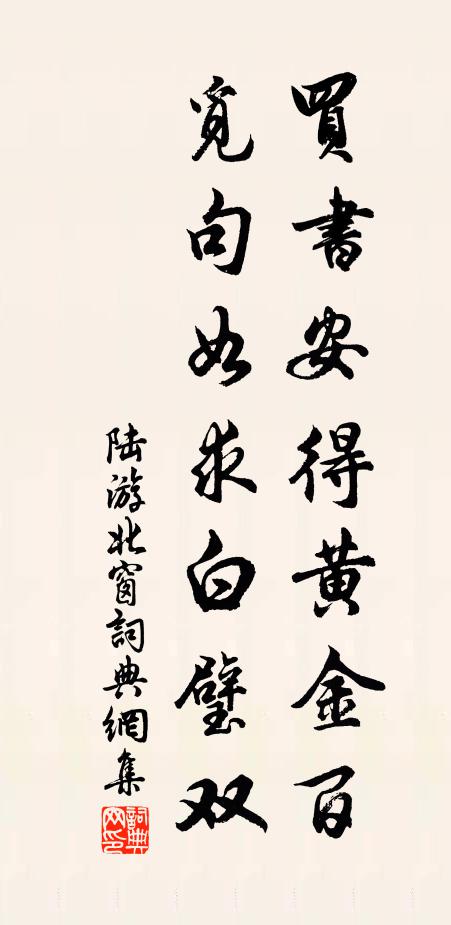 買書安得黄金百
覓句如求白璧双
陆游北窗詞典網集
詞典網印